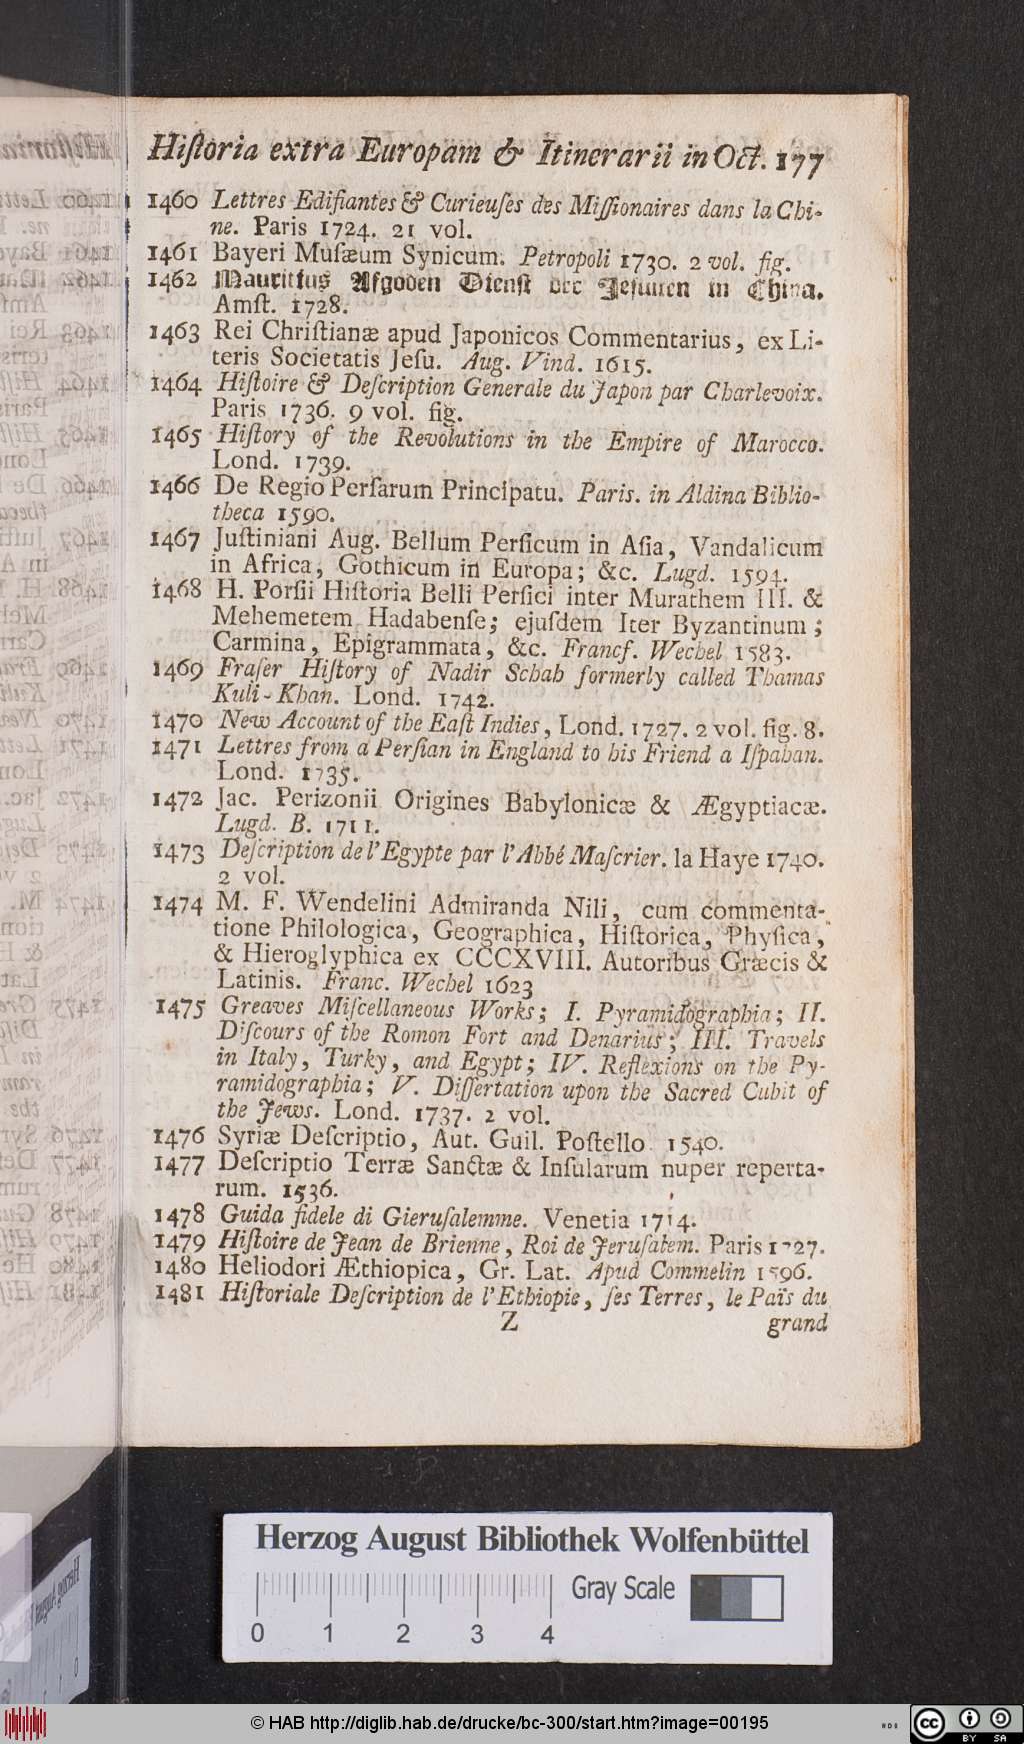 Hiſtoria extra Europam & Itinerarii in Oct. 177
1460 Lettres Edifiantes & Curieuſes des Miſſionaires dans la Chi-
ne. Paris 1724. 21 vol.
1461 Bayeri Muſæum Synicum. Petropoli 1730. 2 vol. fig.
1462 Mauritius Afgoden Dienſt der Jeſuiten in China.
Amſt. 1728.
1463 Rei Chriſtianæ apud Japonicos Commentarius, ex Li-
teris Societatis Jeſu. Aug. Vind. 1615.
1464 Hiſtoire & Deſcription Generale du Japon par Charlevoix.
Paris 1736. 9 vol. fig.
1465 Hiſtory of the Revolutions in the Empire of Marocco.
Lond. 1739.
1466 De Regio Perſarum Principatu. Paris. in Aldina Biblio-
theca 1590.
1467 Juſtiniani Aug. Bellum Perſicum in Aſia, Vandalicum
in Africa, Gothicum in Europa; &c. Lugd. 1594.
1468 H. Porſii Hiſtoria Belli Perſici inter Murathem III. &
Mehemetem Hadabenſe; ejuſdem Iter Byzantinum;
Carmina, Epigrammata, &c. Francf. Wechel 1583.
1469 Fraſer Hiſtory of Nadir Schah formerly called Thamas
Kuli-Khan. Lond. 1742.
1470 New Account of the Eaſt Indies, Lond. 1727. 2 vol. fig. 8.
1471 Lettres from a Perſian in England to his Friend a Iſpahan.
Lond. 1735.
1472 Jac. Perizonii Origines Babylonicæ & Ægyptiacæ.
Lugd. B. 1711.
1473 Deſcription de l'Egypte par l'Abbé Maſcrier. la Haye 1740.
2 vol.
1474 M. F. Wendelini Admiranda Nili, cum commenta-
tione Philologica, Geographica, Hiſtorica, Phyſica,
& Hieroglyphica ex CCCXVIII. Autoribus Græcis &
Latinis. Franc. Wechel 1623
1475 Greaves Miſcellaneous Works; I. Pyramidographia; II.
Diſcours of the Romon Fort and Denarius; III. Travels
in Italy, Turky, and Egypt; IV. Reflexions on the Py-
ramidographia; V. Diſſertation upon the Sacred Cubit of
the Jews. Lond. 1737. 2 vol.
1476 Syriæ Deſcriptio, Aut. Guil. Poſtello 1540.
1477 Deſcriptio Terræ Sanctæ & Inſularum nuper reperta-
rum. 1536.
1478 Guida fidele di Gieruſalemme. Venetia 1714.
1479 Hiſtoire de Jean de Brienne, Roi de Jeruſalem. Paris 1727.
1480 Heliodori Æthiopica, Gr. Lat. Apud Commelin 1596.
1481 Hiſtoriale Deſcription de l'Ethiopie, ſes Terres, le Païs du
Z grand
Herzog August Bibliothek Wolfenbüttel
Gray Scale
0 1 2 3 4
© HAB http://diglib.hab.de/drucke/bc-300/start.htm?image=00195
cc BY SA